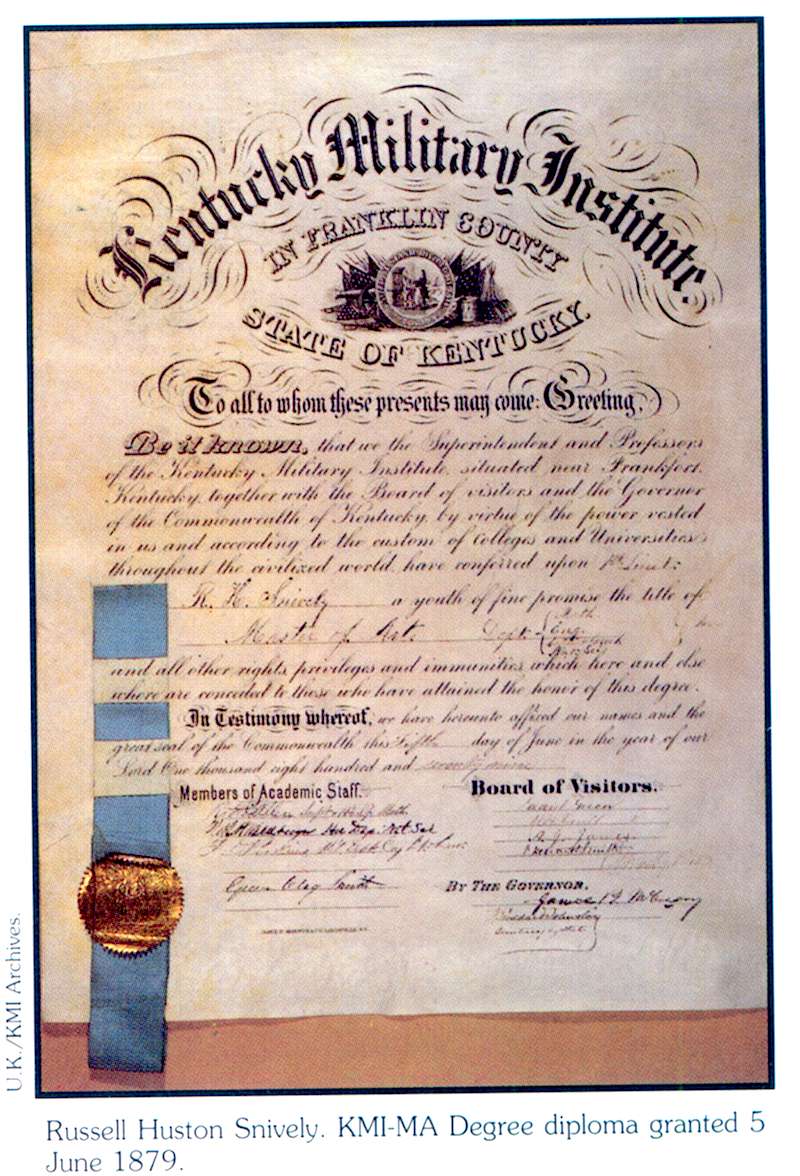 Kentucky Military Institute.
IN FRANKLIN COUNTY
STATE OF KENTUCKY.
To all to whom these presents may come: Greeting,
Be it known, that we the Superintendent and Professors
of the Kentucky Military Institute, situated near Frankfort,
Kentucky, together with the Board of visitors and the Governor
of the Commonwealth of Kentucky, by virtue of the power vested
in us and according to the custom of Colleges and Universities
throughout the civilized world, have conferred upon 1st Lieut:
R. H. Snively a youth of fine promise the title of
Master of Arts Dept.
and all other rights, privileges and immunities, which here and else
where are conceded to those who have attained the honor of this degree.
In Testimony whereof, we have hereunto affixed our names and the
great seal of the Commonwealth this Fifth day of June in the year of our
Lord One thousand eight hundred and seventy nine
Members of Academic Staff.
Board of Visitors.
Green Clay Smith
BY THE GOVERNOR.
James B. McCreary
U.K./KMI Archives.
Russell Huston Snively. KMI-MA Degree diploma granted 5
June 1879.